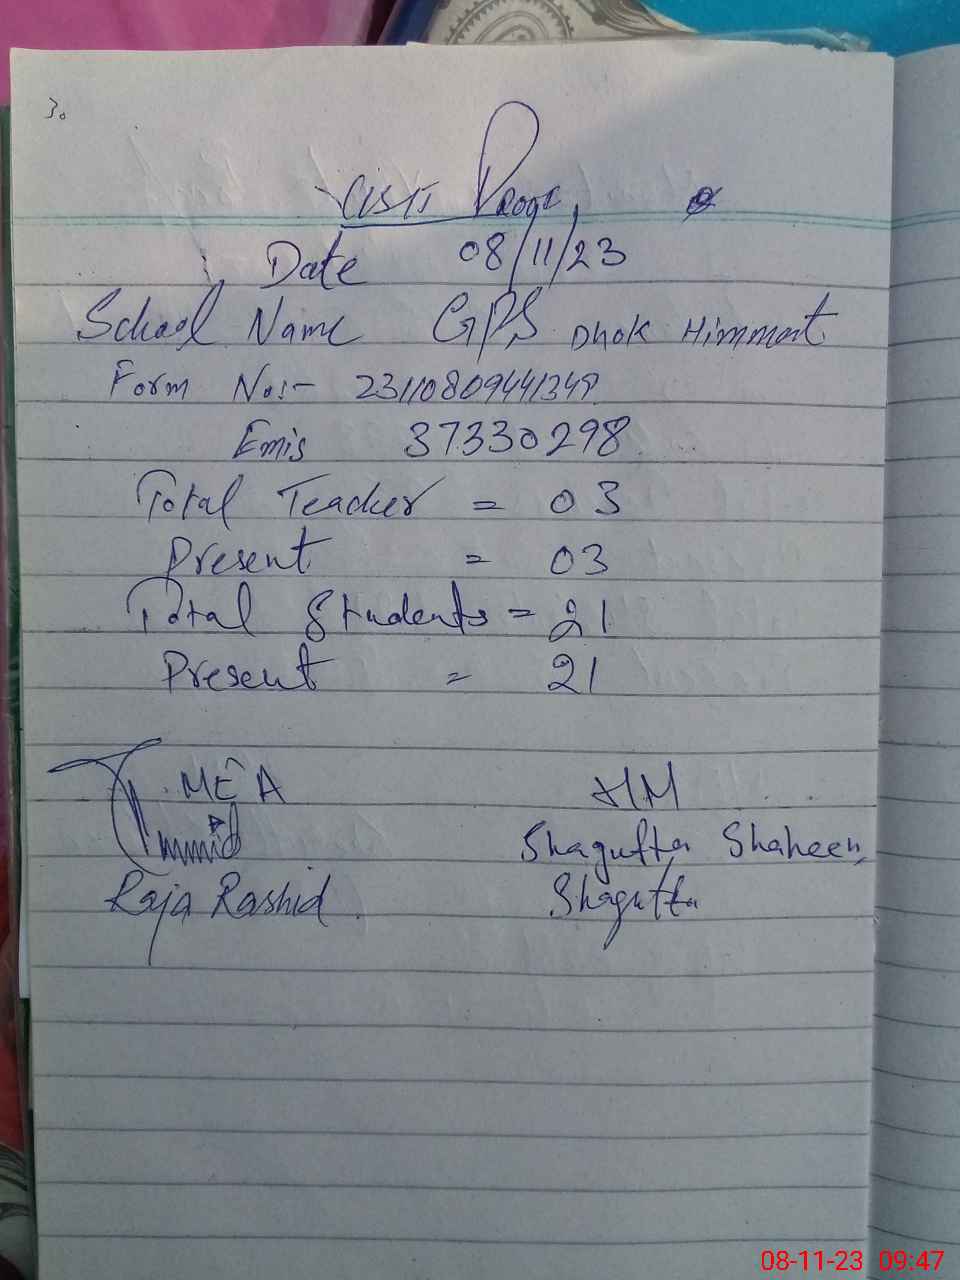 3.
Visit Proof
Date 08/11/23
School Name GPS Dhok Himmat
Form No:- 23110809441349
Emis 37330298
Total Teacher = 03
Present = 03
Total Students = 21
Present = 21
MEA HM
Shagufta Shaheen
Raja Rashid Shagufta
08-11-23 09:47